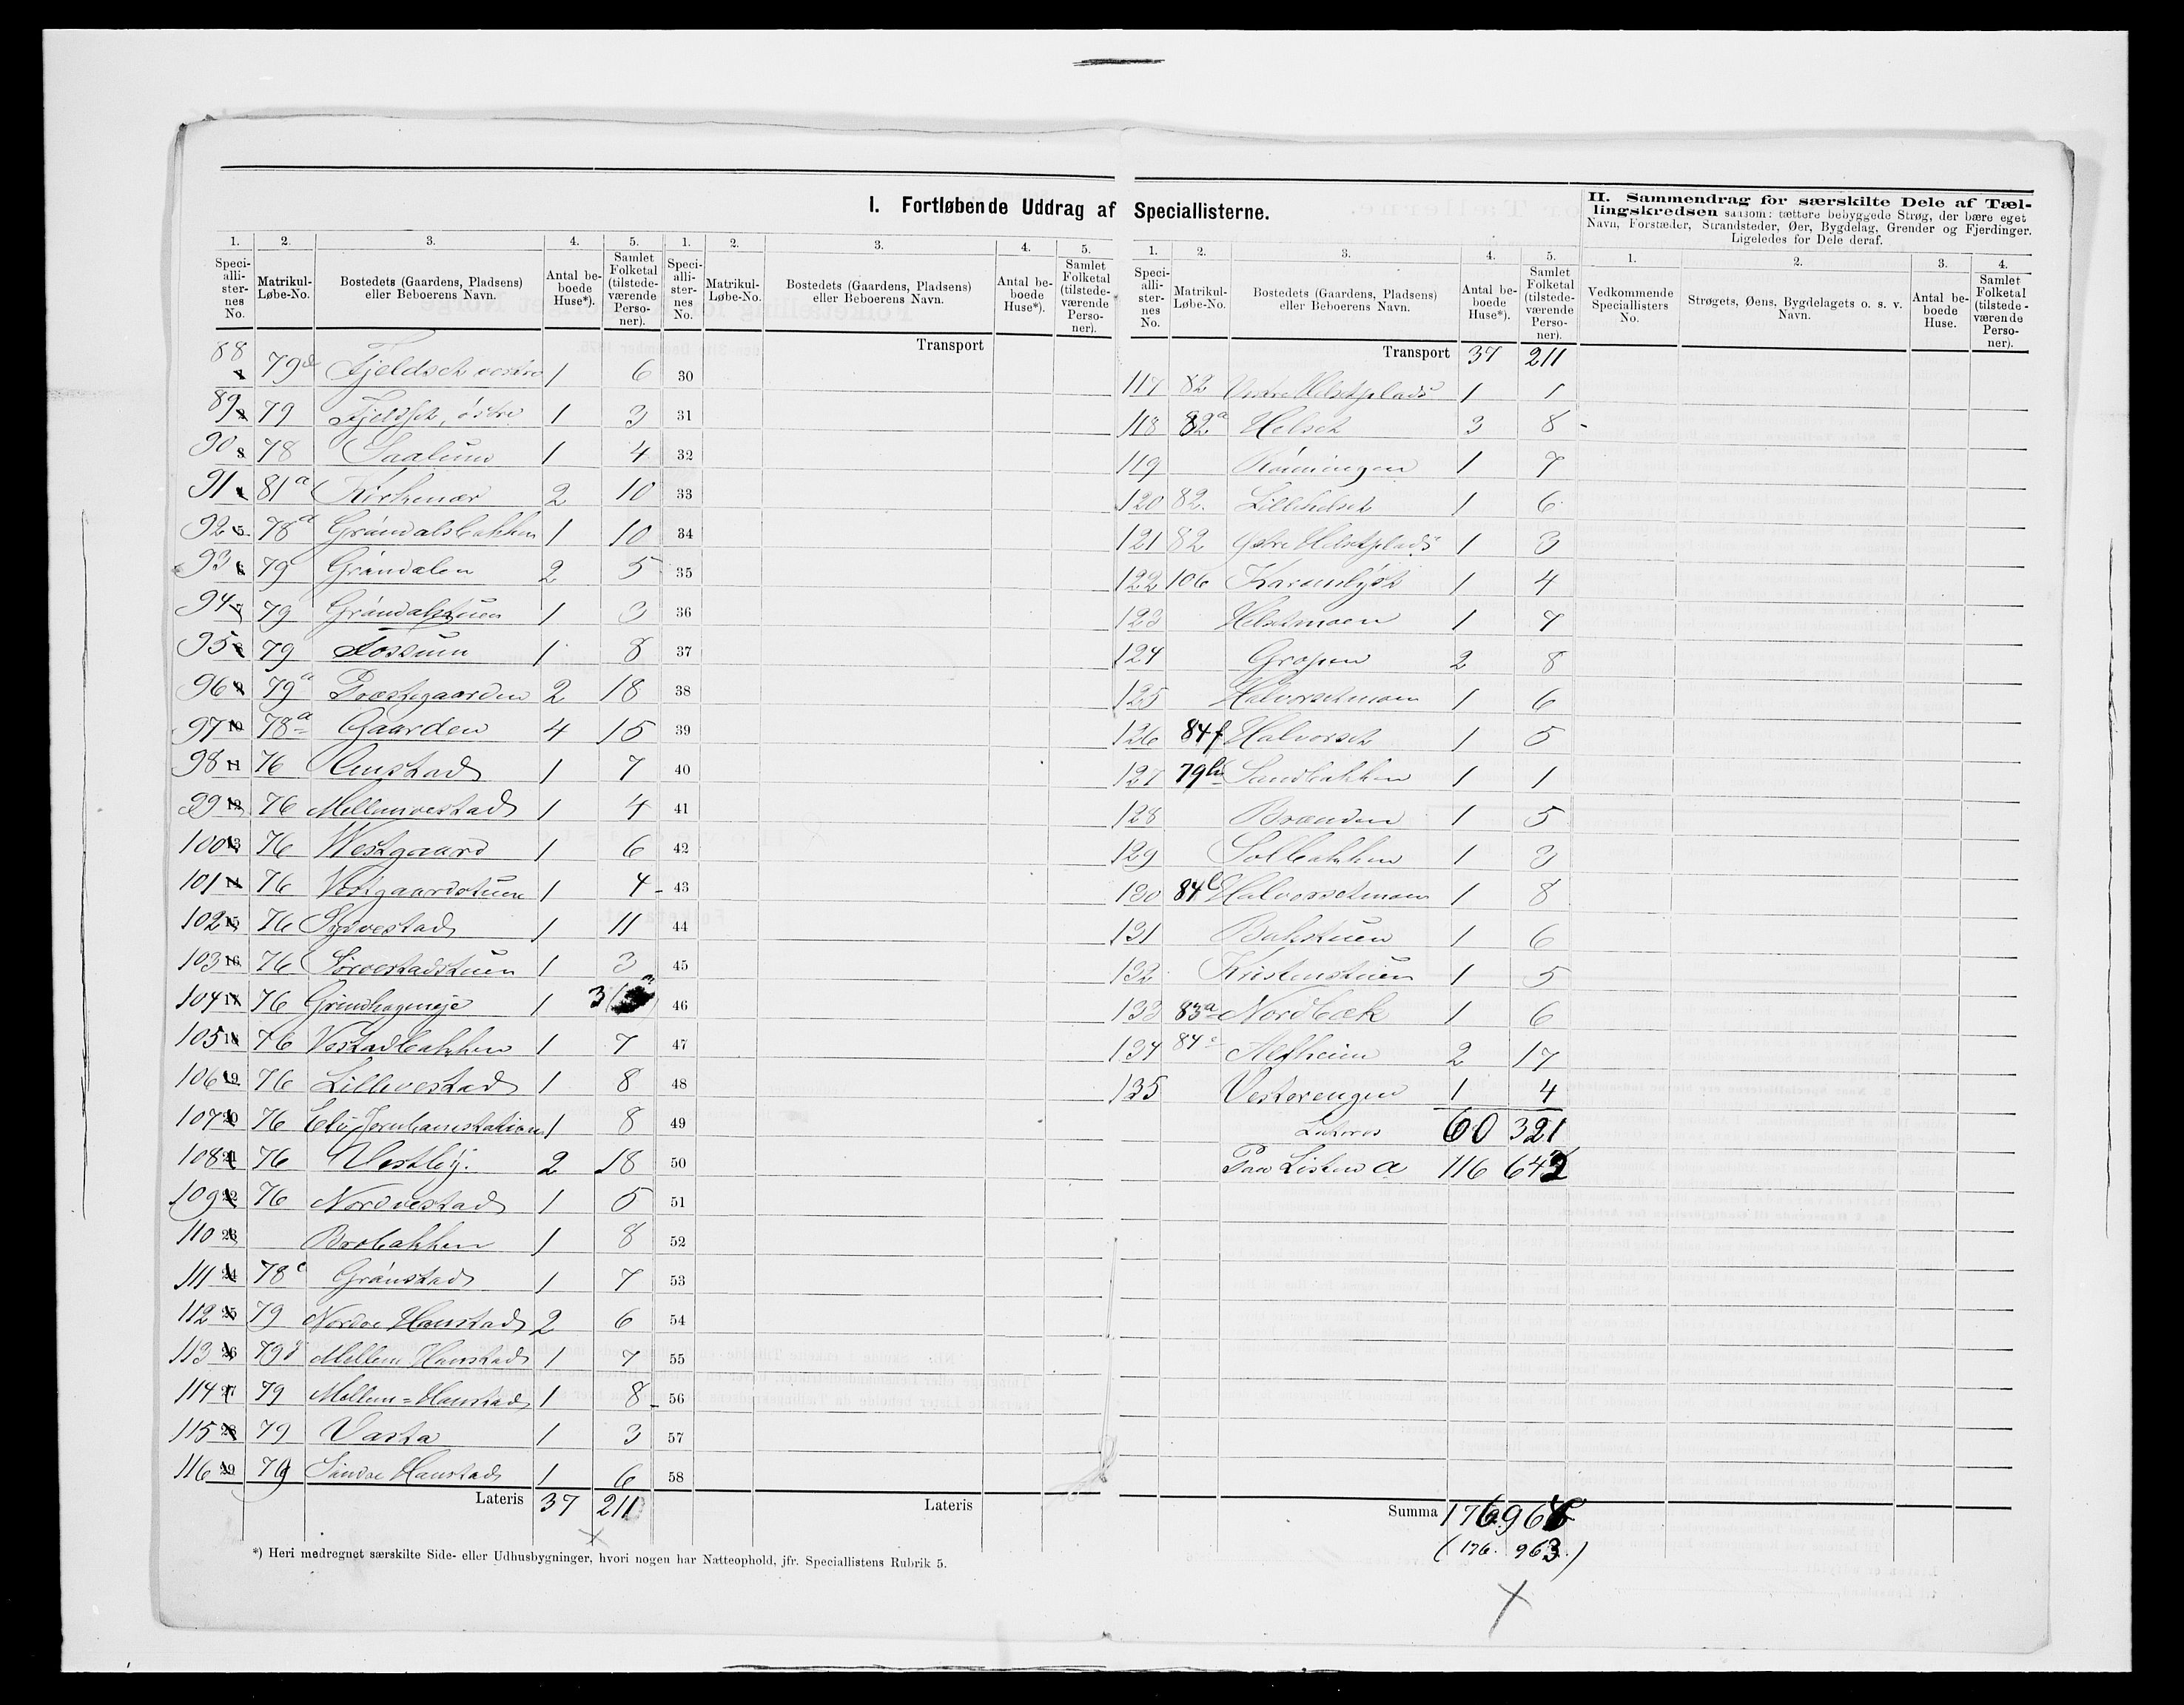 I. Fortløbende Uddrag af Speciallisterne.
II. Sammendrag for særskilte Dele af Tællingskredsen saasom: tættere bebyggede Strøg, der bære eget
Navn, Forstæder, Strandsteder, Øer, Bygdelag, Grender og Fjerdinger.
Ligeledes for Dele deraf.
1. 2. 3. 4. 5. 1. 2. 3. 4. 5.
Speciallisternes No. Matrikul-Løbe-No. Bostedets (Gaardens, Pladsens) eller Beboerens Navn. Antal beboede Huse*). Samlet Folketal (tilstedeværende Personer).
Speciallisternes No. Matrikul-Løbe-No. Bostedets (Gaardens, Pladsens) eller Beboerens Navn. Antal beboede Huse*). Samlet Folketal (tilstedeværende Personer).
Transport
88 79d Fjeldset vestre 1 6 30
89 2 79 Fjeldset, östre 1 3 31
90 3 78 Saalund 1 4 32
91 4 81a Kirkenær 2 10 33
92 5 78a Gröndalsbakken 1 10 34
93 6 79 Gröndalen 2 5 35
94 7 79 Gröndalstuen 1 3 36
95 8 79 Fossum 1 8 37
96 9 79a Præstegaarden 2 18 38
97 10 78a Gaarden 4 15 39
98 11 76 1 7 40
99 12 76 Mellemvestad 1 4 41
100 13 76 Westgaard 1 6 42
101 14 76 Vestgaardstuen 1 4 43
102 15 76 1 11 44
103 16 76 Sörvestadstuen 1 3 45
104 17 76 1 3 46
105 18 76 Vestadbakken 1 7 47
106 19 76 Lillevestad 1 8 48
107 20 76 Jernbanestation 1 8 49
108 21 76 Vestby. 2 18 50
109 22 76 Nordvestad 1 5 51
110 23 Brobakken 1 8 52
111 24 78c Grönstad 1 7 53
112 25 79 Nordre Hanstad 2 6 54
113 26 79 Mellem Hanstad 1 7 55
114 27 79 Mellem=Hanstad 1 8 56
115 28 79 Vasta 1 3 57
116 29 79 Söndre Hanstad 1 6 58
Lateris 37 211 Lateris
*) Heri medregnet særskilte Side- eller Udhusbygninger, hvori nogen har Natteophold, jfr. Speciallistens Rubrik 5.
1. 2. 3. 4. 5. 1. 2. 3. 4.
Speciallisternes No. Matrikul-Løbe-No. Bostedets (Gaardens, Pladsens) eller Beboerens Navn. Antal beboede Huse*). Samlet Folketal (tilstedeværende Personer).
Vedkommende Speciallisters No. Strøgets, Øens, Bygdelagets o. s. v. Navn. Antal beboede Huse. Samlet Folketal (tilstedeværende Personer).
Transport 37 211
117 82 Vestre Helsetplads 1 1
118 82a Helset 3 8
119 Rönningen 1 7
120 82. Lillehelset 1 6
121 82 Östre Helsetplads 1 3
122 106 Karenslyst 1 4
123 Helsetmoen 1 7
124 Gropen 2 8
125 Halvorsetmoen 1 6
126 84f Halvorset 1 5
127 79 Sandbakken 1 1
128 Brænden 1 5
129 Solbakken 1 3
130 84 Halvorsetmoen 1 8
131 Bakstuen 1 6
132 Kristenstuen 1 5
133 83a Nordbæk 1 6
134 84 Alfheim 2 17
135 Vesterengen 1 4
Lateris 60 321
Paa Listen a 116 642
Summa 176 96
(176. 963.)